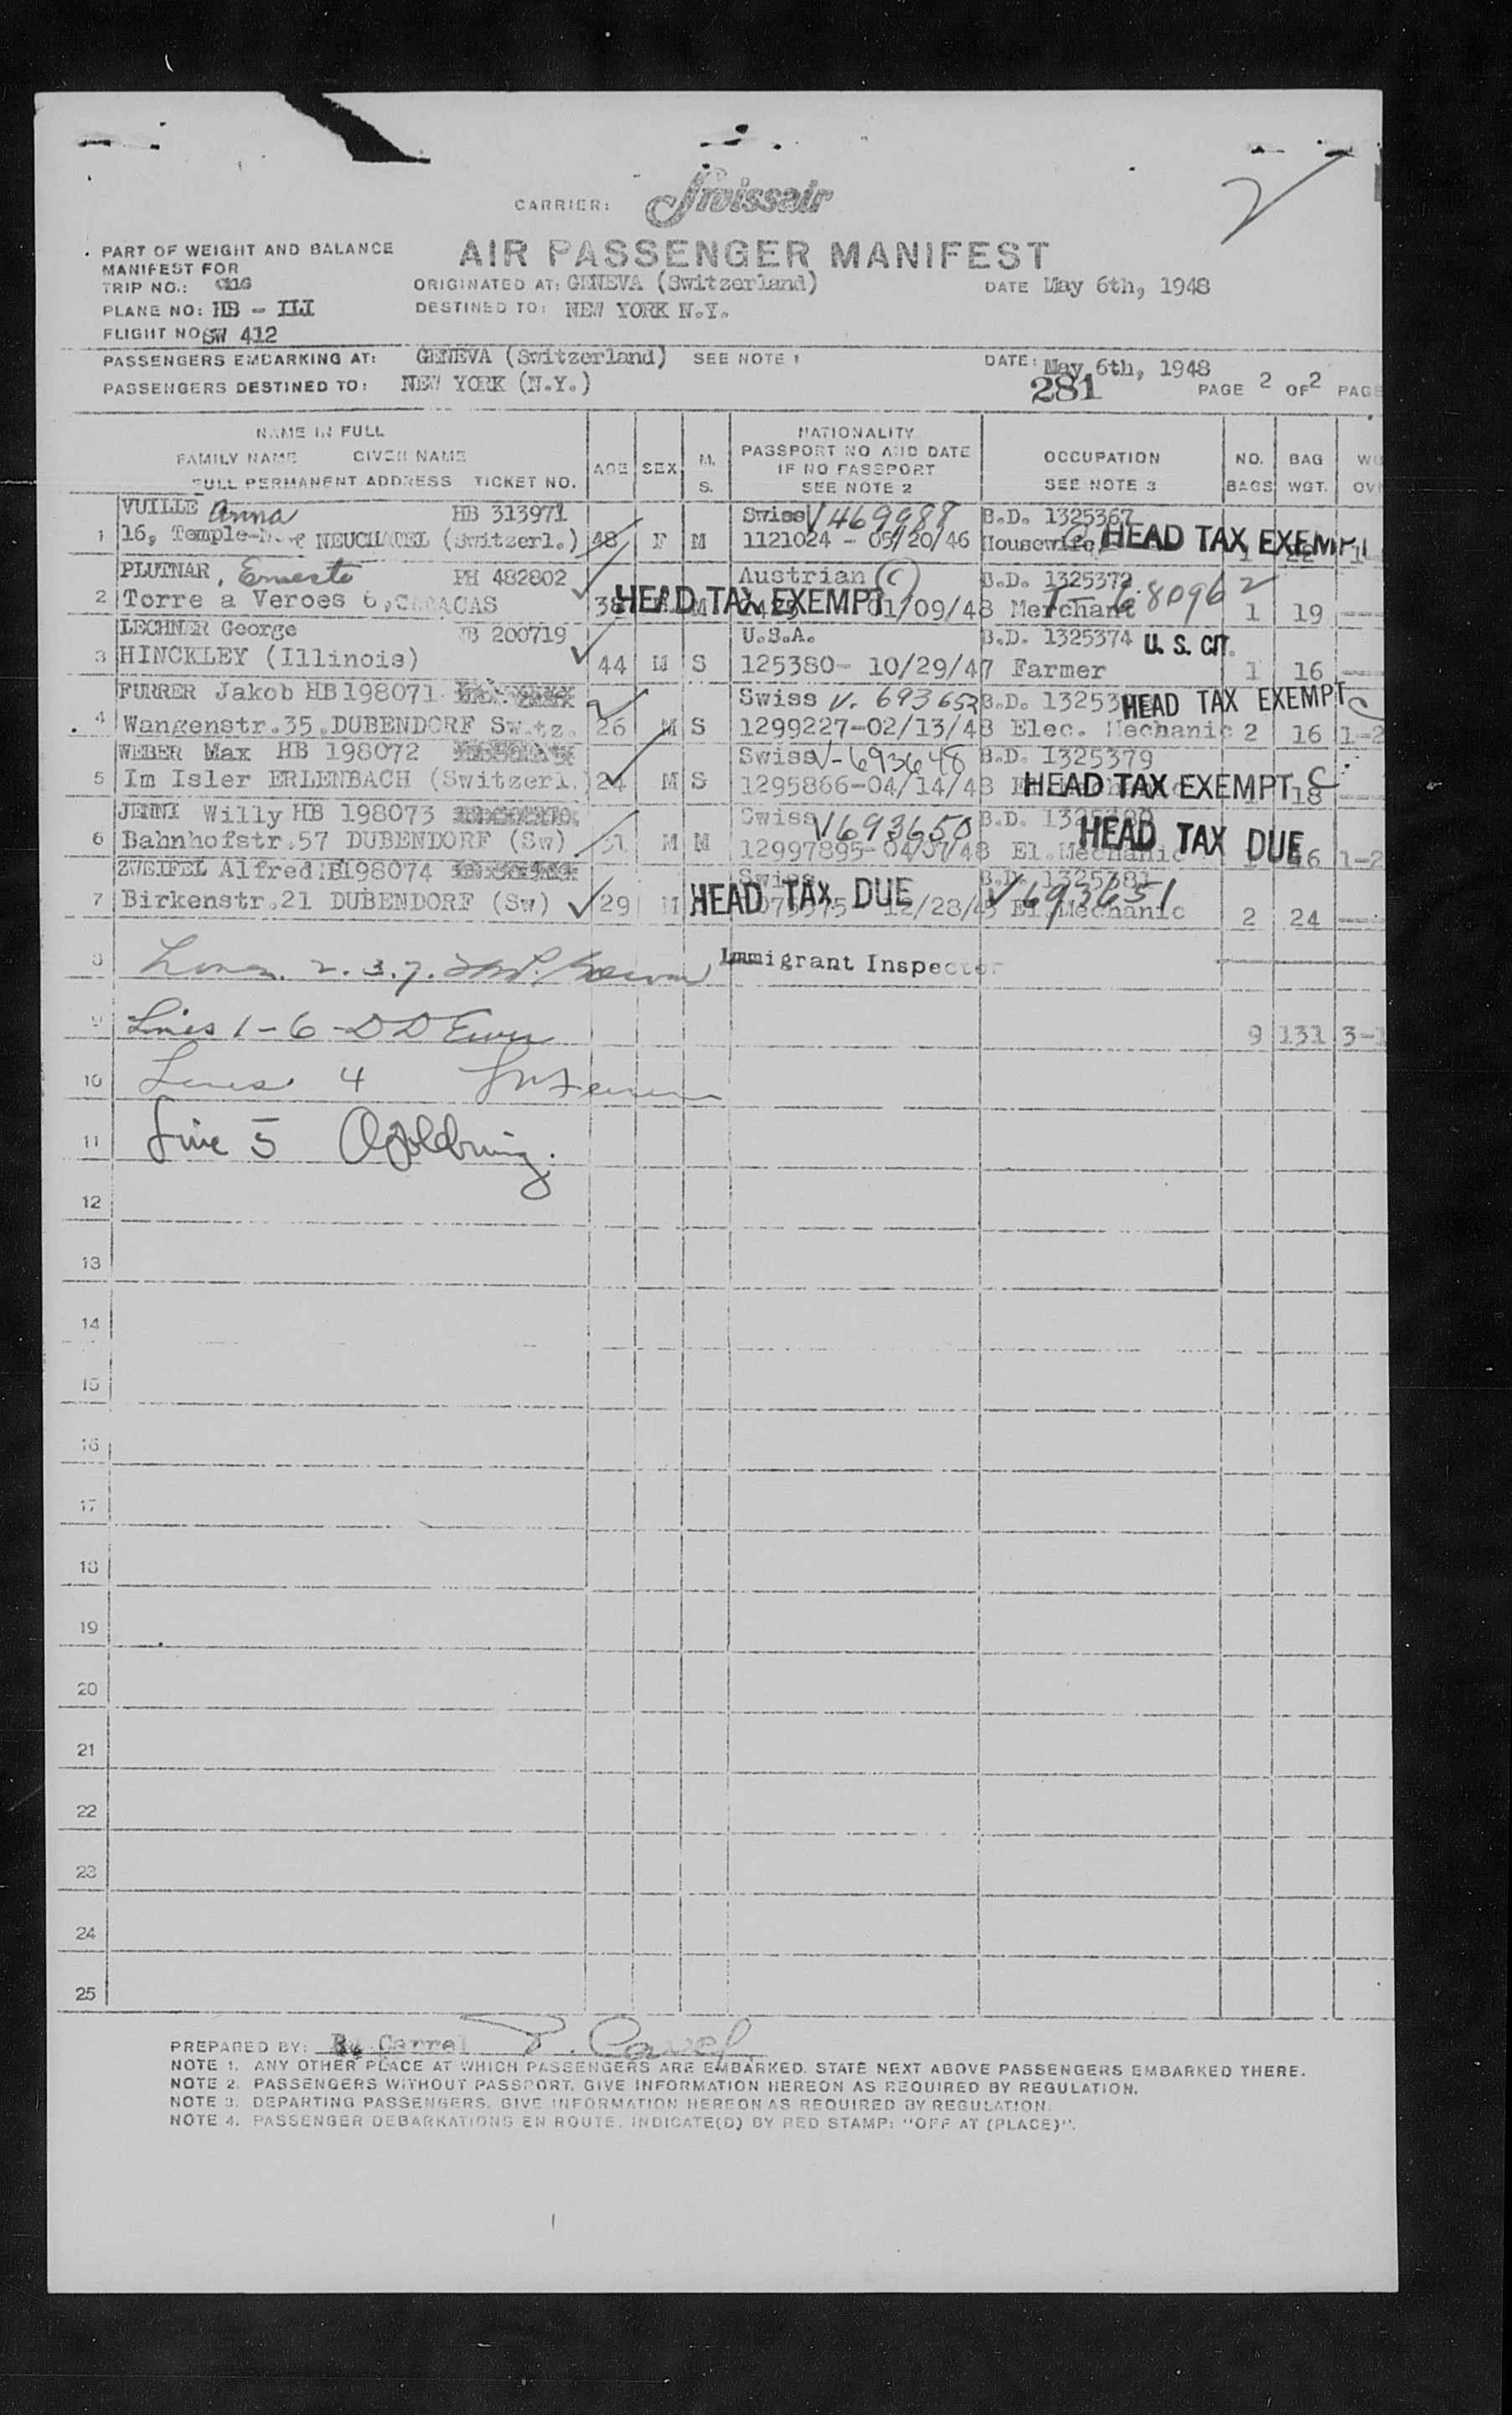 CARRIER: Swissair
AIR PASSENGER MANIFEST
PART OF WEIGHT AND BALANCE
MANIFEST FOR
TRIP NO.:
ORIGINATED AT: GENEVA (Switzerland)
DATE May 6th, 1948
PLANE NO: HB - ILI
DESTINED TO: NEW YORK N.Y.
FLIGHT NO SW 412
PASSENGERS EMBARKING AT: GENEVA (Switzerland) SEE NOTE 1
DATE: May 6th, 1948
PASSENGERS DESTINED TO: NEW YORK (N.Y.)
281
PAGE 2 OF 2 PAGE
NAME IN FULL
FAMILY NAME GIVEN NAME
FULL PERMANENT ADDRESS TICKET NO.
AGE SEX M. S.
NATIONALITY
PASSPORT NO AND DATE
IF NO PASSPORT
SEE NOTE 2
OCCUPATION
SEE NOTE 3
NO. BAGS
BAG WGT.
VUILLE Anna HB 313971 Swiss V469988 B.D. 1325367
1 16, Temple- NEUCHATEL (Switzerl.) 48 F M 1121024 - 05/20/46 Housewife HEAD TAX EXEMPT 1 22 1-
PLUTNAR, Ernesto PH 482802 Austrian (C) B.D. 1325372
2 Torre a Veroes 6, CARACAS 38 M HEAD TAX EXEMPT 01/09/48 Merchant 680962 1 19 ---
LECHNER George HB 200719 U.S.A. B.D. 1325374 U. S. CIT.
3 HINCKLEY (Illinois) 44 M S 125380- 10/29/47 Farmer 1 16 ---
FURRER Jakob HB 198071 Swiss V. 693652 B.D. 13253 HEAD TAX EXEMPT C
4 Wangenstr.35.DUBENDORF Switz. 26 M S 1299227-02/13/48 Elec. Mechanic 2 16 1-2
WEBER Max HB 198072 Swiss V-693648 B.D. 1325379
5 Im Isler ERLENBACH (Switzerl.) 24 M S 1295866-04/14/48 HEAD TAX EXEMPT C 18 ---
JENNI Willy HB 198073 Swiss V693650 B.D. 1325380
6 Bahnhofstr.57 DUBENDORF (Sw) 31 M M 12997895- El.Mechanic HEAD TAX DUE 16 1-2
ZWEIFEL Alfred HB198074 Swiss B.D. 1325381
7 Birkenstr.21 DUBENDORF (Sw) 29 M HEAD TAX DUE 12/28/45 El.Mechanic V693651 2 24 ---
8 Lines 2. 3. 7. Immigrant Inspector
9 Lines 1-6 - DD 9 131 3-
10 Lines 4
11 Line 5 Goldring.
12
13
14
15
16
17
18
19
20
21
22
23
24
25
PREPARED BY: R. Carrel R. Carrel
NOTE 1. ANY OTHER PLACE AT WHICH PASSENGERS ARE EMBARKED. STATE NEXT ABOVE PASSENGERS EMBARKED THERE.
NOTE 2. PASSENGERS WITHOUT PASSPORT. GIVE INFORMATION HEREON AS REQUIRED BY REGULATION.
NOTE 3. DEPARTING PASSENGERS. GIVE INFORMATION HEREON AS REQUIRED BY REGULATION.
NOTE 4. PASSENGER DEBARKATIONS EN ROUTE. INDICATE(D) BY RED STAMP: "OFF AT (PLACE)".